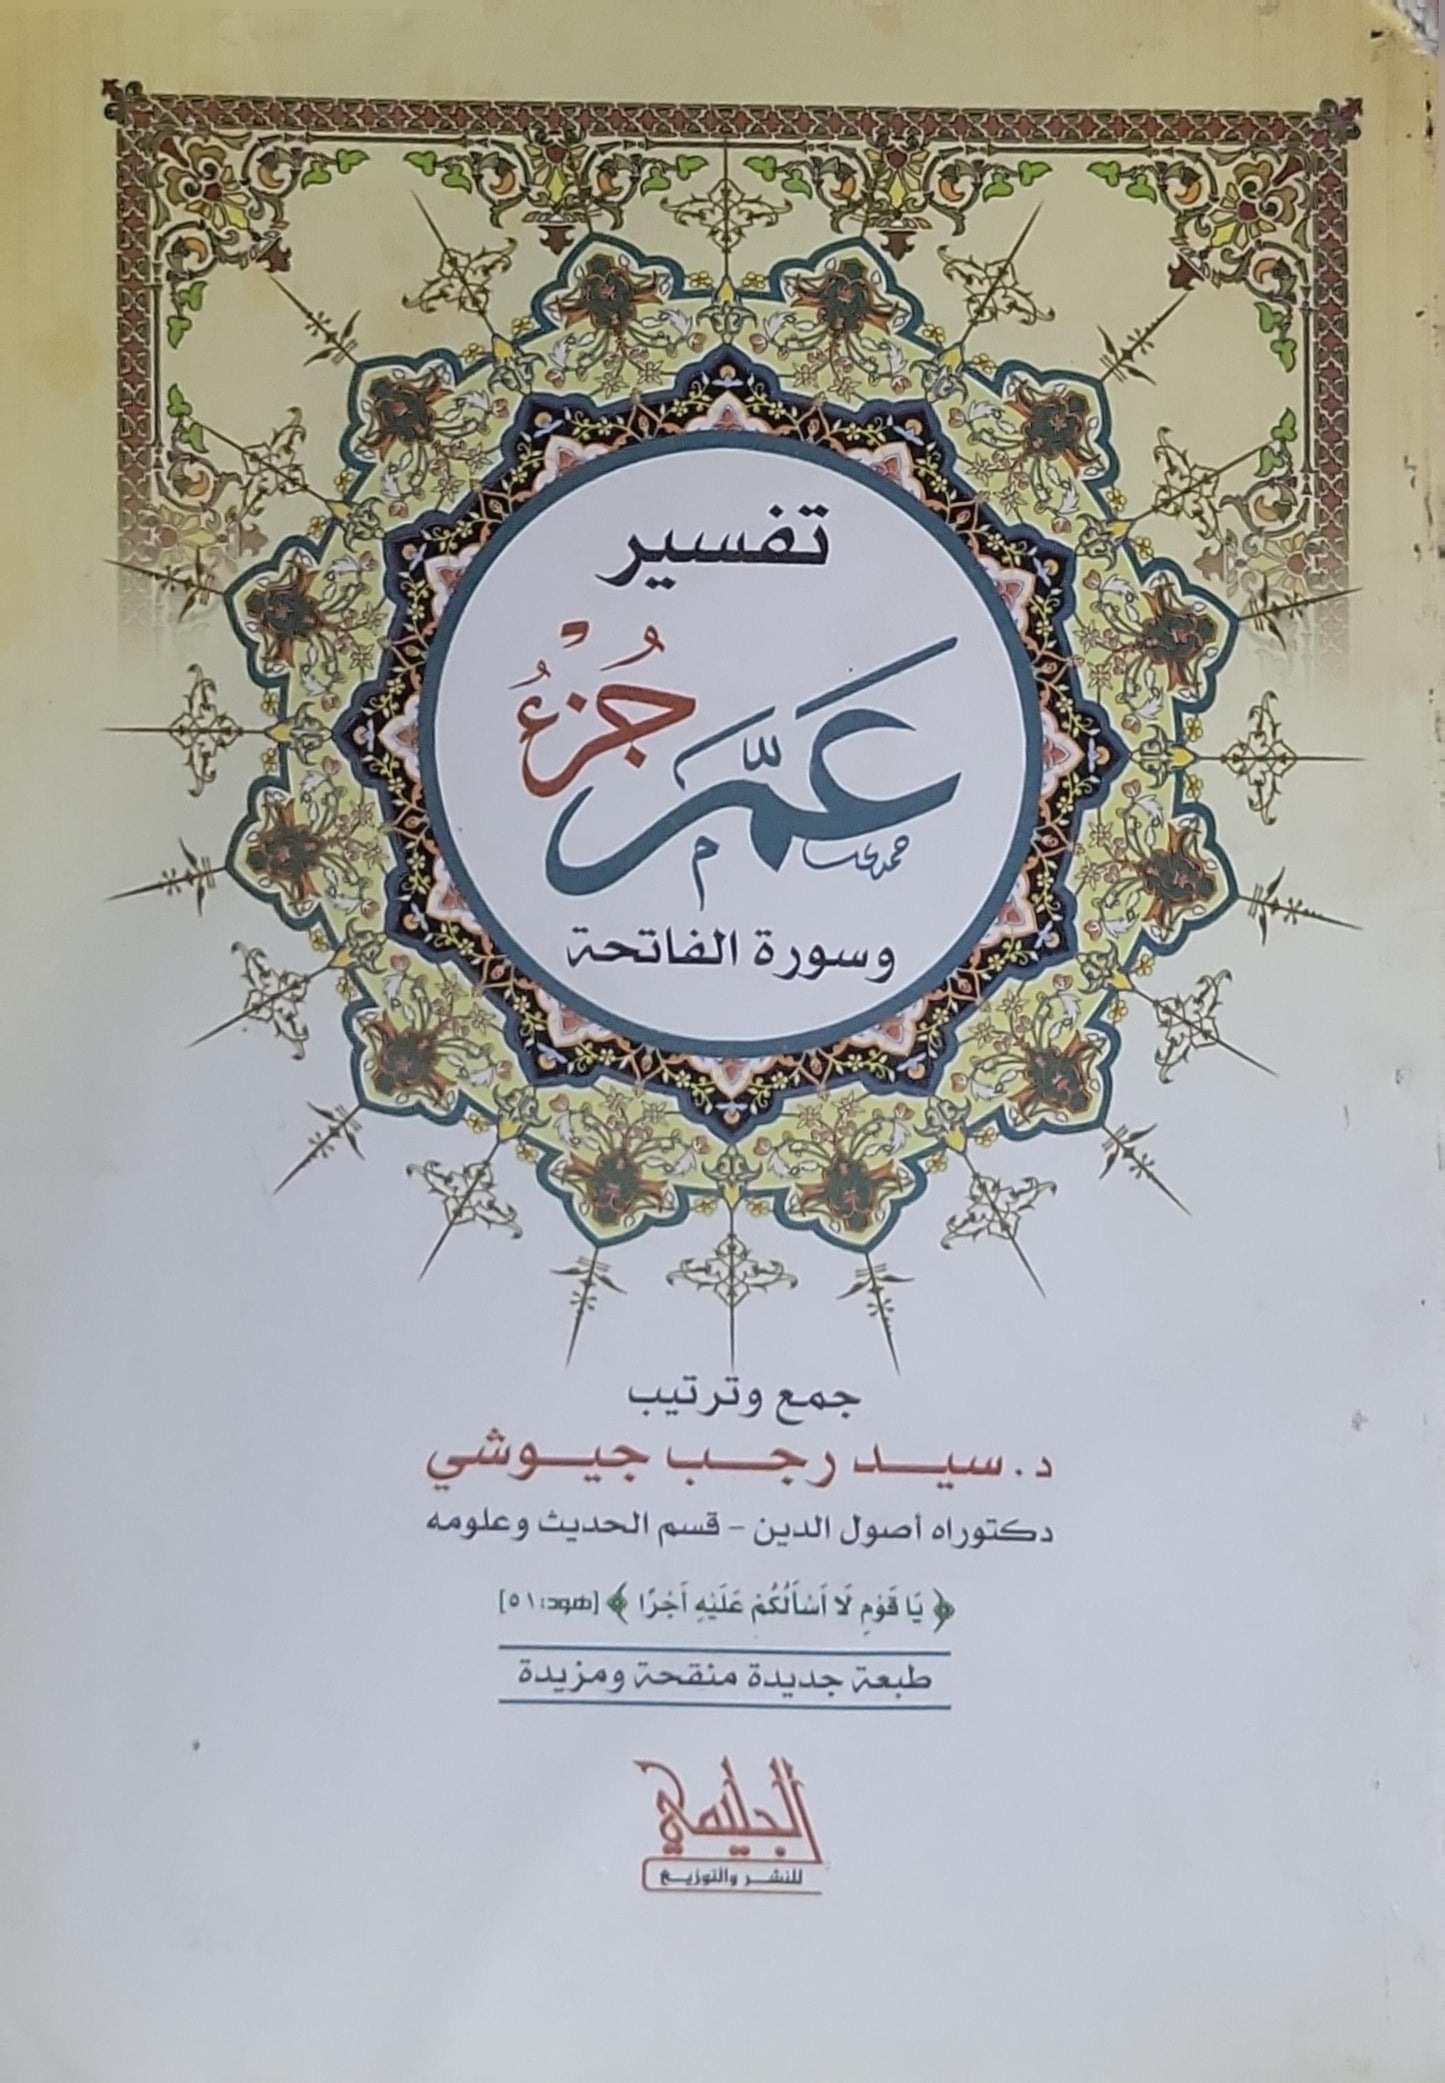 تفسير
جُزْءُ
عَمَّ
وسورة الفاتحة
جمع وترتيب
د. سيد رجب جيوشي
دكتوراه أصول الدين - قسم الحديث وعلومه
﴿ يَا قَوْمِ لَا أَسْأَلُكُمْ عَلَيْهِ أَجْرًا ﴾ [هود:٥١]
طبعة جديدة منقحة ومزيدة
للنشر والتوزيع